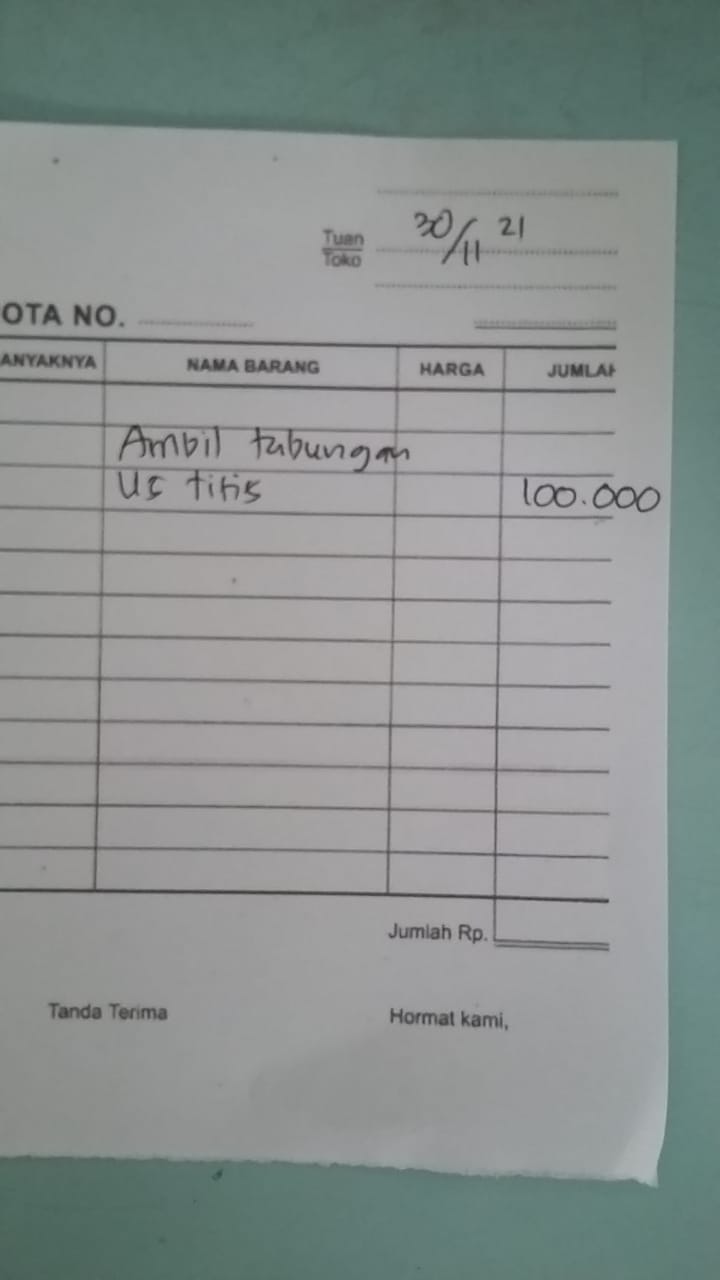 30/11 21
Tuan
Toko
OTA NO.
ANYAKNYA NAMA BARANG HARGA JUMLAH
Ambil tabungan
Us titis 100.000
Jumlah Rp.
Tanda Terima Hormat kami,